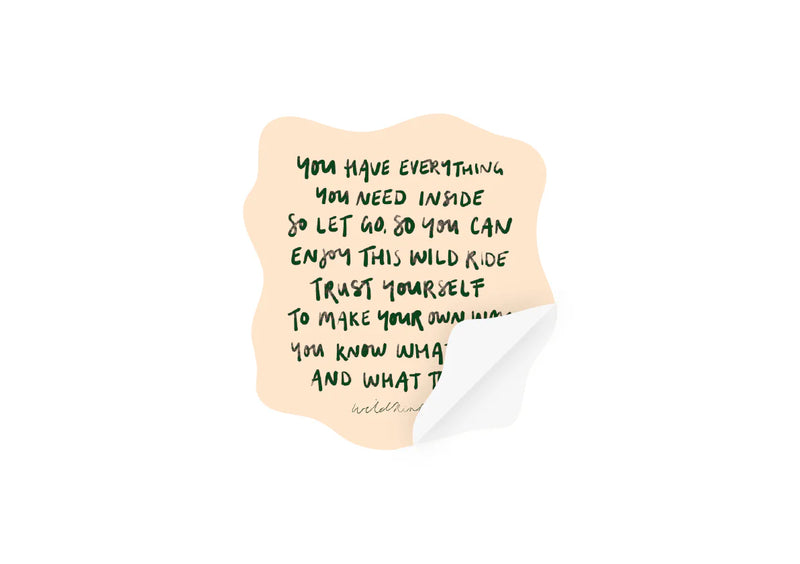 YOU HAVE EVERYTHING
YOU NEED INSIDE
SO LET GO. SO YOU CAN
ENJOY THIS WILD RIDE
TRUST YOURSELF
TO MAKE YOUR OWN
YOU KNOW WHAT
AND WHAT